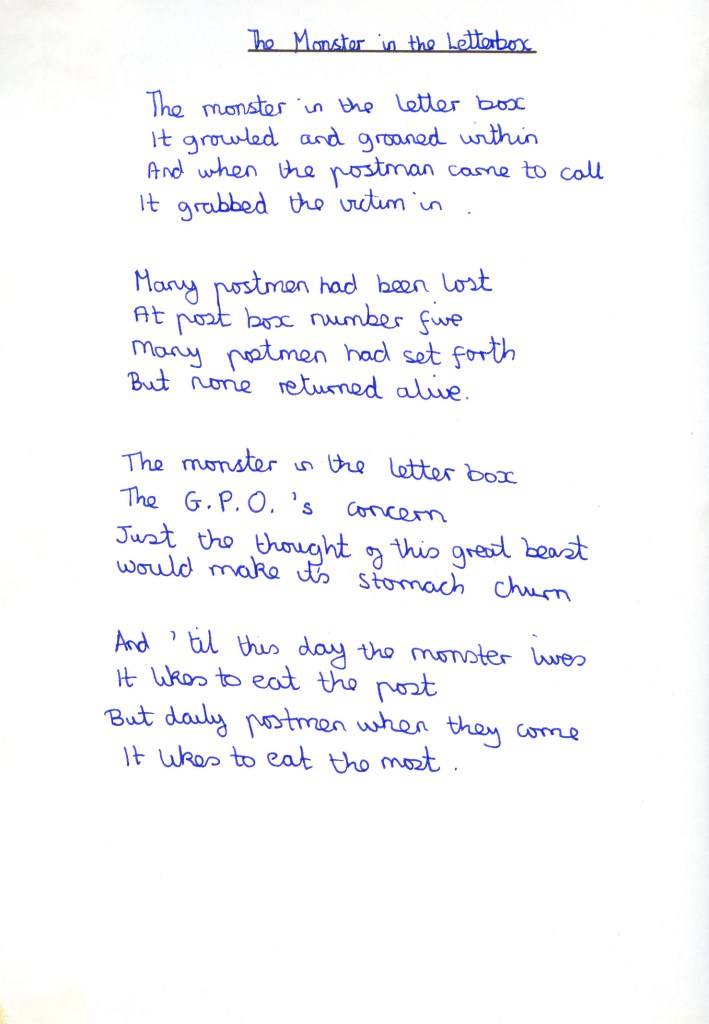 The Monster in the Letterbox
The monster in the letter box
It growled and groaned within
And when the postman came to call
It grabbed the victim in .
Many postmen had been lost
At post box number five
Many postmen had set forth
But none returned alive.
The monster in the letter box
The G.P.O.'s concern
Just the thought of this great beast
would make it's stomach churn
And 'til this day the monster lives
It likes to eat the post
But daily postmen when they come
It likes to eat the most .